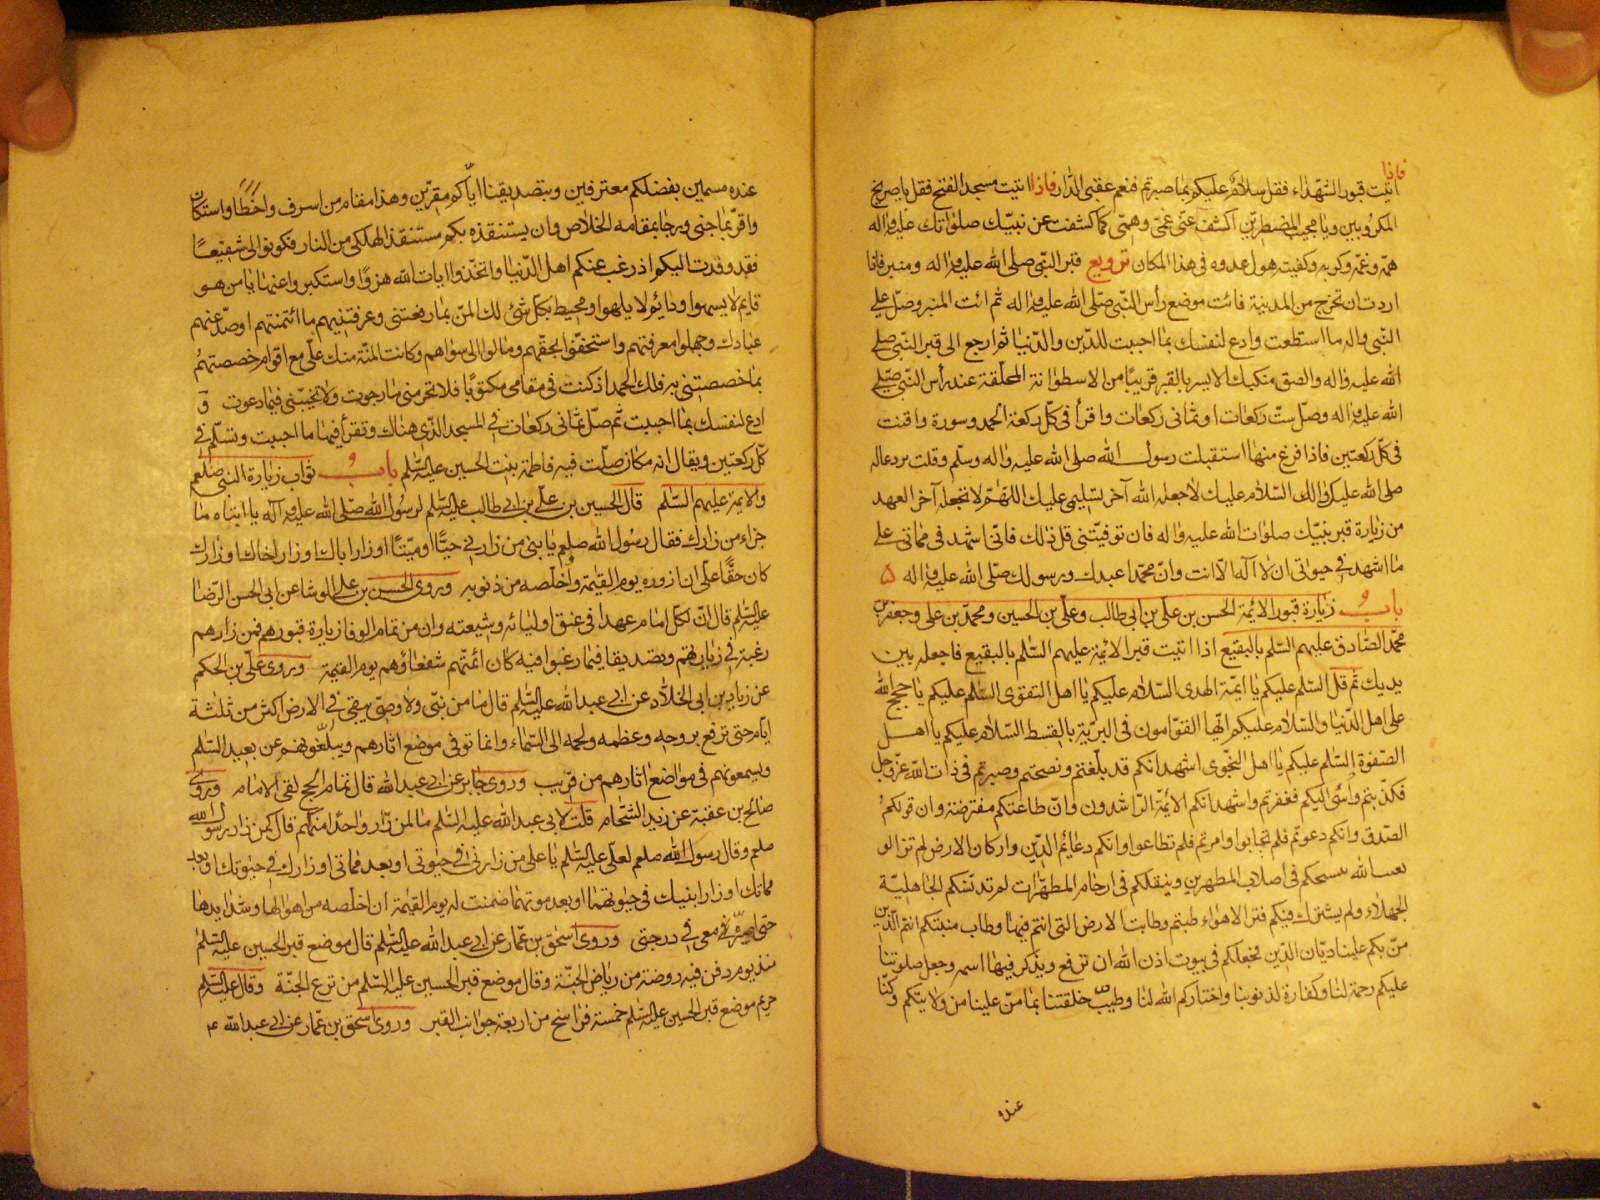 فاذا
اتيت قبور الشهداء فقل سلام عليكم بما صبرتم فنعم عقبى الدار فاذا اتيت مسجد الفتح فقل يا صريخ
المكروبين ويا مجيب المضطرين اكشف عنى غمى وهمى كما كشفت عن نبيك صلواتك عليه واله
همه وغمه وكربه وكفيته هول عدوه فى هذا المكان توديع قبر النبى صلى الله عليه واله ومنبره فاذا
اردت ان تخرج من المدينة فائت موضع رأس النبى صلى الله عليه واله ثم ائت المنبر وصل على
النبى واله ما استطعت وادع لنفسك بما احببت للدين والدنيا ثم ارجع الى قبر النبى صلى
الله عليه واله والصق منكبك الايسر بالقبر قريبا من الاسطوانة المخلقة عند رأس النبى صلى
الله عليه واله وصل ست ركعات او ثمانى ركعات واقرأ فى كل ركعة الحمد وسورة واقنت
فى كل ركعتين فاذا فرغ منها استقبلت رسول الله صلى الله عليه واله وسلم وقلت
صلى الله عليك واالك السلام عليك لا جعله الله آخر تسليمى عليك اللهم لا تجعله آخر العهد
من زيارة قبر نبيك صلوات الله عليه واله فان توفيتنى قبل ذلك فانى اشهد فى مماتى على
ما اشهد فى حيوتى ان لا اله الا انت وان محمدا عبدك ورسولك صلى الله عليه واله ۵
باب زيارة قبور الائمة الحسن بن على بن ابى طالب وعلى بن الحسين ومحمد بن على وجعفر بن
محمد الصادق عليهم السلم بالبقيع اذا اتيت قبر الائمة عليهم السلم بالبقيع فاجعله بين
يديك ثم قل السلم عليكم يا ائمة الهدى السلام عليكم يا اهل التقوى السلم عليكم يا حجج الله
على اهل الدنيا والسلام عليكم ايها القوامون فى البرية بالقسط السلام عليكم يا اهل
الصفوة السلم عليكم يا اهل النجوى اشهد انكم قد بلغتم ونصحتم وصبرتم فى ذات الله عز وجل
فكذبتم واسئ اليكم فغفرتم واشهد انكم الائمة الراشدون وان طاعتكم مفترضة وان قولكم
الصدق وانكم دعوتم فلم تجابوا وامرتم فلم تطاعوا وانكم دعائم الدين واركان الارض لم تزالو
بعين الله ينسخكم فى اصلاب المطهرين وينقلكم فى ارحام المطهرات لم تدنسكم الجاهلية
الجهلاء ولم يشترك فيكم فتن الاهواء طبتم وطابت الارض التى انتم فيها وطاب منبتكم انتم الذين
من بكم علينا ديان الدين فجعلكم فى بيوت اذن الله ان ترفع ويذكر فيها اسمه وجعل صلوتنا
عليكم رحمة لنا وكفارة لذنوبنا واختاركم الله لنا وطيب خلقتنا بما من علينا من ولايتكم وكنا
عنده
عنده مسمين بفضلكم معترفين وبتصديقنا اياكم مقرين وهذا مقام من اسرف واخطأ واستكان
واقر بما جنى ورجا بمقامه الخلاص وان يستنقذه بكم مستنقذ الهلكى من النار فكونوا لى شفيعا
فقد وفدت اليكم اذ رغب عنكم اهل الدنيا واتخذوا ايات الله هزوا واستكبروا عنها يا من هو
قايم لا يسهوا ودايم ولا يلهوا ومحيط بكل شئ لك المن بما وفقتنى وعرفتنيهم ما ائتمنتهم اوصد عنهم
عبادك وجهلوا معرفتهم واستخفوا بحقهم ومالوا الى سواهم وكانت المنة منك على مع اقوام خصصتهم
بما خصصتنى به فلك الحمد اذ كنت فى مقامى مكتوبا فلا تحرمنى ما رجوت ولا تخيبنى فيما دعوت و
ادع لنفسك بما احببت ثم صل ثمانى ركعات فى المسجد الذى هناك وتقرأ فيها ما احببت وتسلم فى
كل ركعتين ويقال انه مكان صلت فيه فاطمة بنت الحسين عليه السلم باب ثواب زيارة النبى صلعم
والائمة عليهم السلم قال الحسين بن على بن ابى طالب عليه السلم لرسول الله صلى الله عليه وآله يا ابتاه ما
جزاء من زارك فقال رسول الله صلعم يا بنى من زارنى حيا او ميتا او زار اباك او زار اخاك او زارك
كان حقا على ان ازوره يوم القيمة واخلصه من ذنوبه وروى الحسن بن على الوشا عن ابى الحسن الرضا
عليه السلم قال ان لكل امام عهدا فى عنق اوليائه وشيعته وان من تمام الوفا زيارة قبورهم فمن زارهم
رغبة فى زيارتهم وتصديقا فيما رغبوا فيه كان ائمتهم شفعاؤهم يوم القيمة وروى على بن الحكم
عن زياد بن ابى الخلاد عن ابى عبد الله عليه السلم قال ما من نبى ولا وصى يبقى فى الارض اكثر من ثلثة
ايام حتى ترفع بروحه وعظمه ولحمه الى السماء وانما توفى موضع اثارهم ويبلغونهم عن بعيد السلم
ويسمعونهم فى مواضع اثارهم من قريب وروى جابر عن ابى عبد الله قال تمام الحج لقى الامام وروى
صالح بن عقبة عن زيد الشحام قلت لابى عبد الله عليه السلم ما لمن زار واحدا منكم قال كمن زار رسول الله
صلعم وقال رسول الله صلعم لعلى عليه السلم يا على من زارنى فى حيوتى او بعد مماتى او زارك فى حيوتك او بعد
مماتك او زار ابنيك فى حيوتهما او بعد موتهما ضمنت له يوم القيمة ان اخلصه من اهوالها وشدايدها
حتى اصيره معى فى درجتى وروى اسحق بن عمار عن ابى عبد الله عليه السلم قال موضع قبر الحسين عليه السلم
منذ يوم دفن فيه روضة من رياض الجنة وقال موضع قبر الحسين عليه السلم من ترع الجنة وقال عليه السلم
حريم موضع قبر الحسين عليه السلم خمسة فراسخ من اربعة جوانب القبر وروى اسحق بن عمار عن ابى عبد الله ع